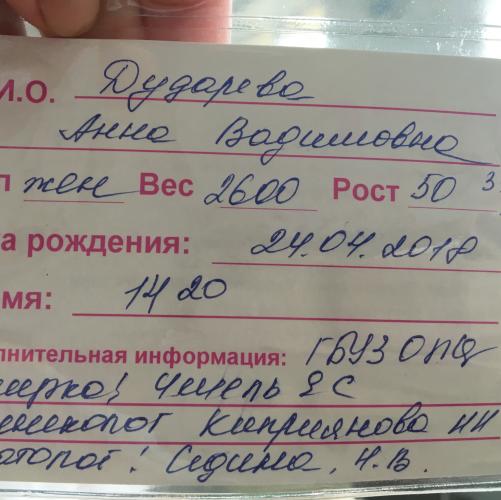 И.О. Дударева
Анна Вадимовна
л жен Вес 2600 Рост 50 3
а рождения: 24.04.2018
мя: 14 20
лнительная информация: ГБУЗ ОПЦ
Чмель ЕС
Киприянова НН
Седина, Н.В.